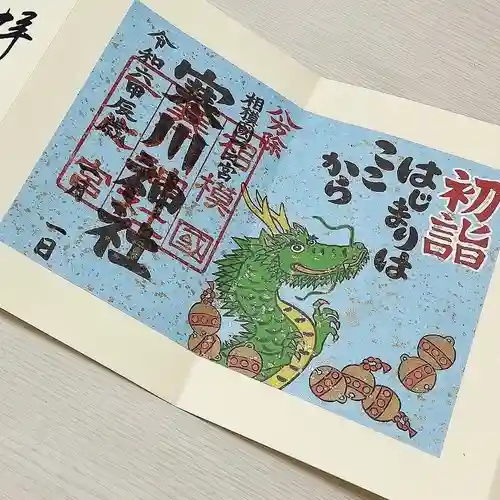 初詣
はじまりは
ここ
から
八方除
相模國一之宮
寒川神社
相模國
一宮
令和六甲辰歳
一日
拝